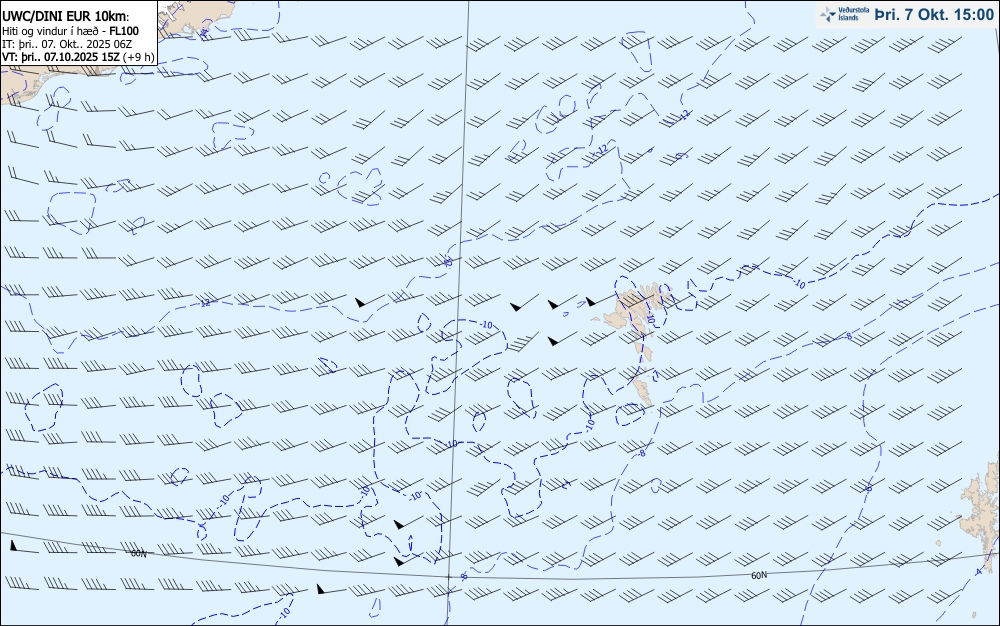 UWC/DINI EUR 10km:
Hiti og vindur í hæð - FL100
IT: þri.. 07. Okt.. 2025 06Z
VT: þri.. 07.10.2025 15Z (+9 h)
Veðurstofa
Íslands
Þri. 7 Okt. 15:00
-12
-12
-10
-12
-10
-10
-8
-10
-10
-8
-10
-10
-10
60N
-8
60N
-10